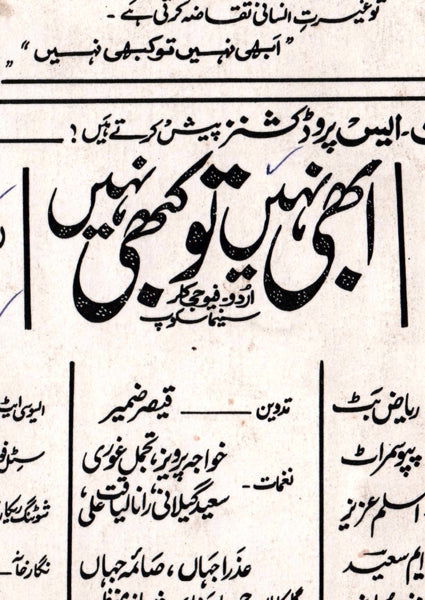 تو غیرتِ انسانی تقاضہ کرتی ہے ۔
" ابھی نہیں تو کبھی نہیں "
۔ ایس پروڈکشنز پیش کرتے ہیں ؟
ابھی نہیں تو کبھی نہیں
اردو ۔ فیوجی کلر
سینما سکوپ
ریاض بٹ
پپو سمراٹ
اسلم عزیز
ایم سعید
تدوین ـــــ قیصر ضمیر
نغمات ۔ خواجہ پرویز، تجمل غوری
سعید گیلانی، رانا لیاقت علی،
عذرا جہاں ، صائمہ جہاں